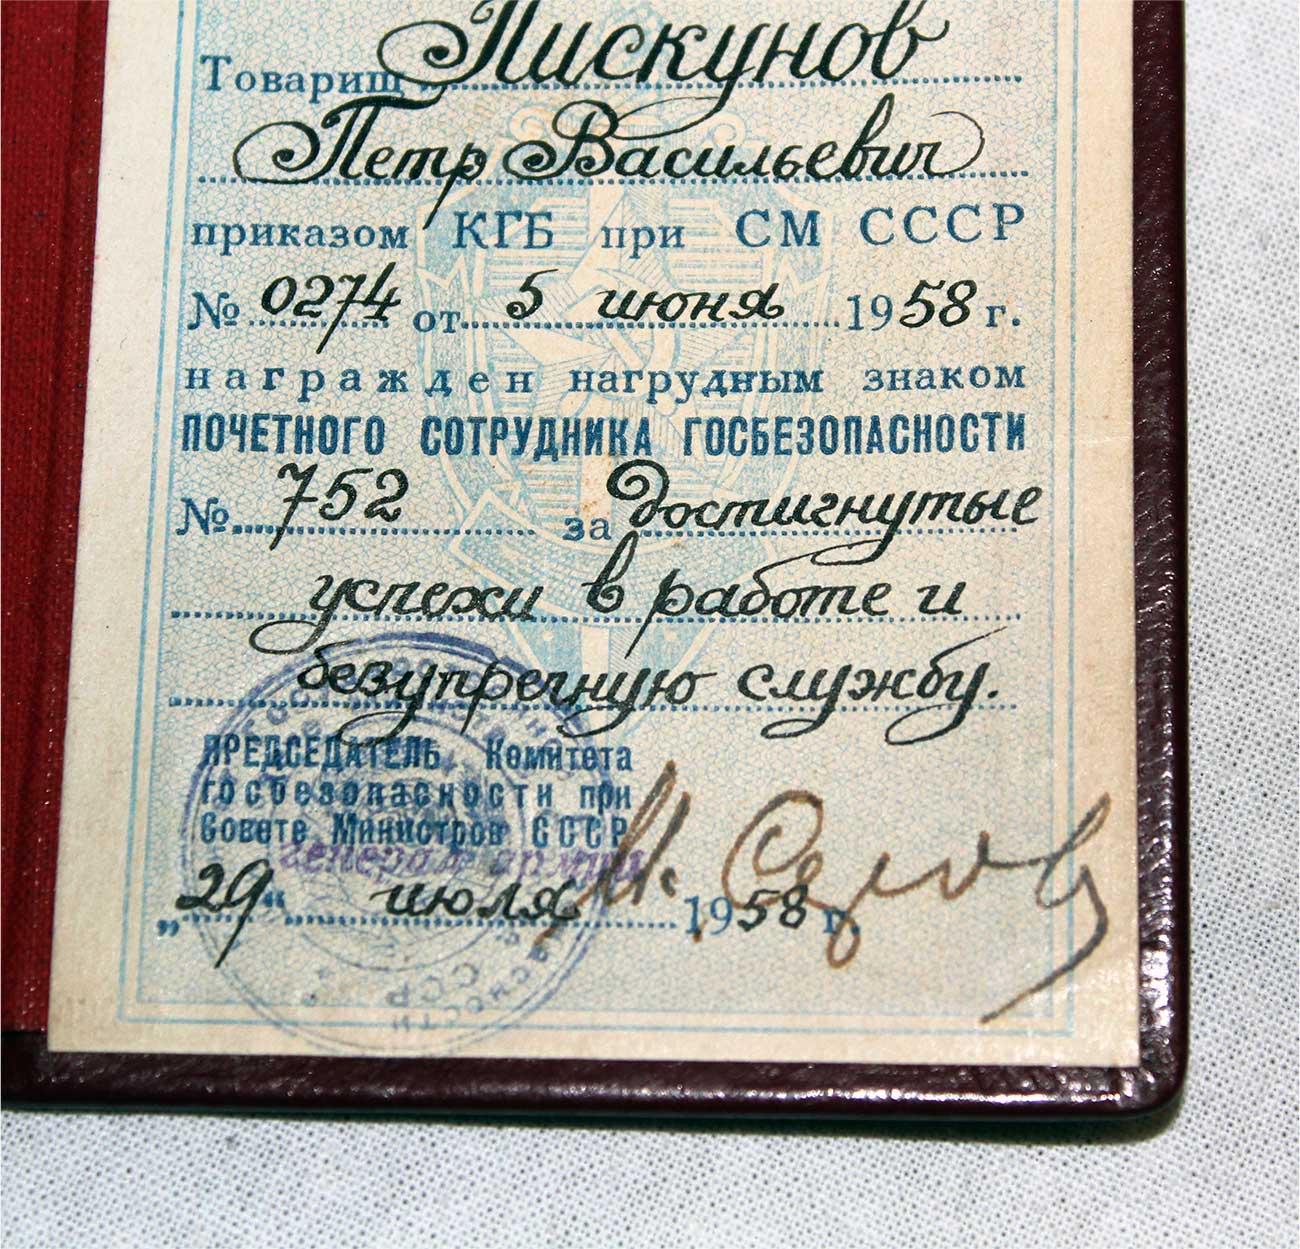 Товарищ Пискунов
Петр Васильевич
приказом КГБ при СМ СССР
№ 0274 от 5 июня 1958 г.
награжден нагрудным знаком
ПОЧЕТНОГО СОТРУДНИКА ГОСБЕЗОПАСНОСТИ
№ 752 за достигнутые
успехи в работе и
безупречную службу.
ПРЕДСЕДАТЕЛЬ Комитета
госбезопасности при
Совете Министров СССР
генерал армии
И. Серов
„29“ июля 1958 г.